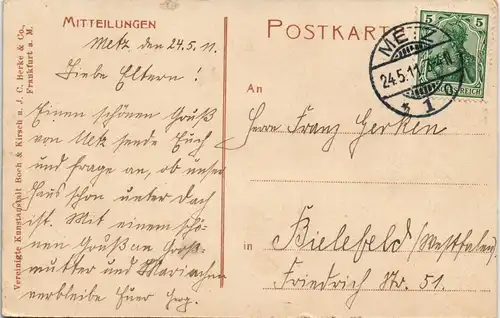 MITTEILUNGEN
Metz, den 24.5.11.
Liebe Eltern!
Einen schönen Gruß
von Metz sende Euch
und frage an, ob unser
Haus schon unter Dach
ist. Mit einem schö-
nen Gruß an Groß-
mutter und Mariachen
verbleibe Euer
POSTKARTE
METZ
24.5.11.
* 1
5 5
REICH
An
Herrn Franz Gerken
in Bielefeld/Westfalen
Friedrich Str. 51.
Vereinigte Kunstanstalt Boch & Kirsch u. J. C. Herke & Co.,
Frankfurt a. M.